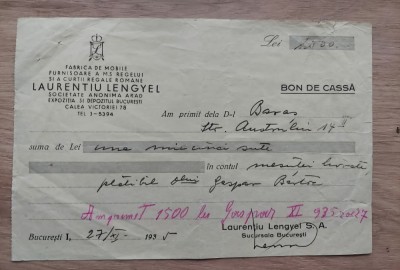 FABRICA DE MOBILE
FURNISOARE A M.S. REGELUI
ȘI A CURTII REGALE ROMÂNE
LAURENTIU LENGYEL
SOCIETATE ANONIMA ARAD
EXPOZITIA SI DEPOZITUL BUCURESTI
CALEA VICTORIEI 78
TEL. 1-5394
Lei 1500
BON DE CASSĂ
Am primit dela D-l Baras
Str. 19
suma de Lei una mie cinci sute
în contul
plătibil dlui Gaspar
Am primit 1500 lei Gaspar
București I, 27/ 1935
Laurențiu Lengyel S. A.
Sucursala București